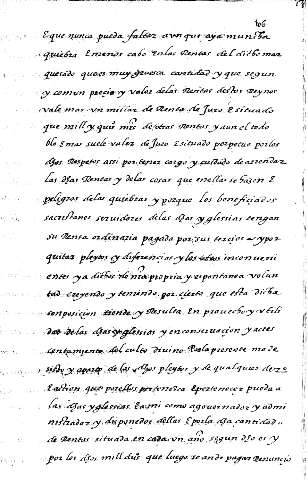 106
E que nunca pueda faltar aunque aya mucha
quiebra E menos cabo En las Rentas del dicho mar
quesado ques muy gruesa cantidad y que segun
y comun precio y valor de las Rentas destos Reynos
vale mas un millar de Renta de Juro E situado
que mill y de otras Rentas y aun el todo
Mas suele valer de Juro E situado perpetuo por los
Respetos assi por tener cargo y cuidado de arrendar
las Rentas y de las cosas que en ellas se hazen E
peligros de las quiebras y porque los beneficiados
sacristanes servidores de las yglesias tengan
su Renta ordinaria pagada por sus tercios y por
quitar pleytos y diferencias y los otros inconveni
entes ya dichos de mi propria y espontanea volun
tad creyendo y teniendo por cierto que esta dicha
composicion tiende y Resulta En provecho y utili
dad de las yglesias y en conservacion y
del culto divino Por la presente me de
de los pleytos y de qualquier
Eaccion que por ellos pertenece E pertenecer pueda a
las yglesias E a mi como a governador y admi
nistrador y disponedor dellas E por la cantidad
de Rentas situada en cada un año segun dicho es y
por los mill que luego se an de pagar Renuncio